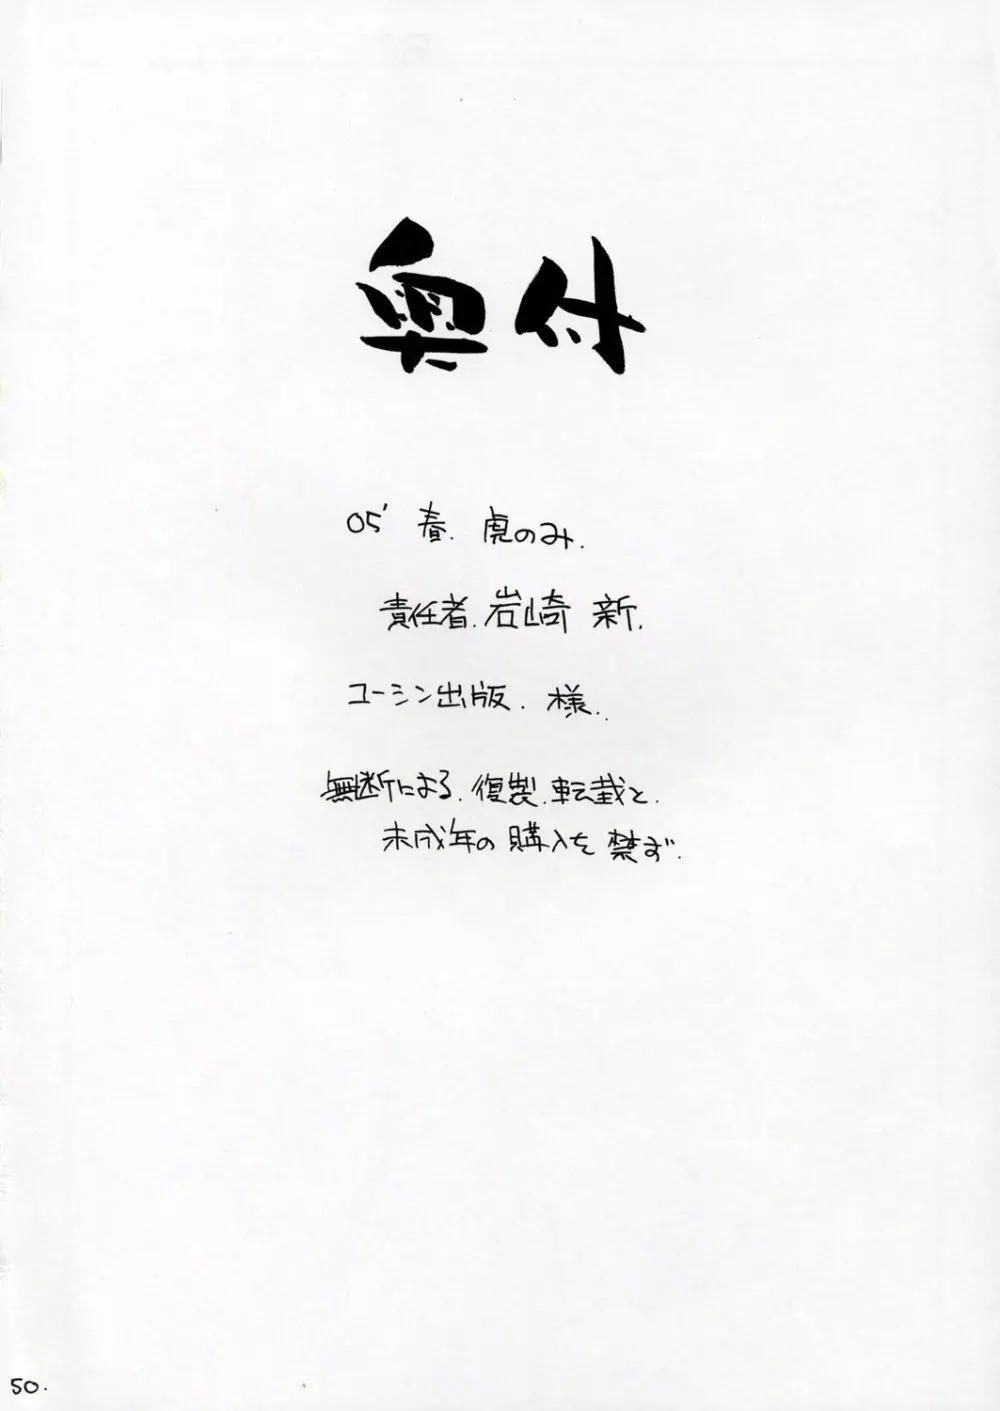 奥付
05' 春. 虎のみ.
責任者. 岩崎 新.
ユーシン出版. 様.
無断による. 復製. 転載と.
未成年の購入を禁ず.
50.